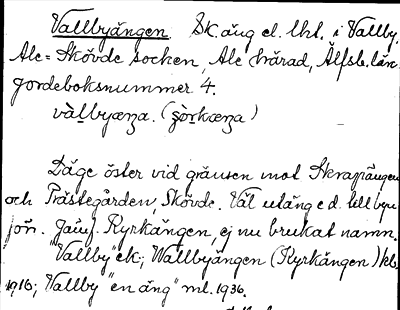 Vallbyängen. Sk. äng el. lht. i Vallby,
Ale-Skövde socken, Ale härad, Älfsb. län.
Jordeboksnummer 4.
vàlbyæŋa. (
Läge öster vid gränsen mot Skrapiängen
och Prästegården, Skövde. Väl utäng e.d. till byn
jön. Jämf. Kyrkängen ej nu brukat namn.
Vallby ek; Wallbyängen (Kyrkängen) kb.
1916; Vallby "en äng" ml. 1936.